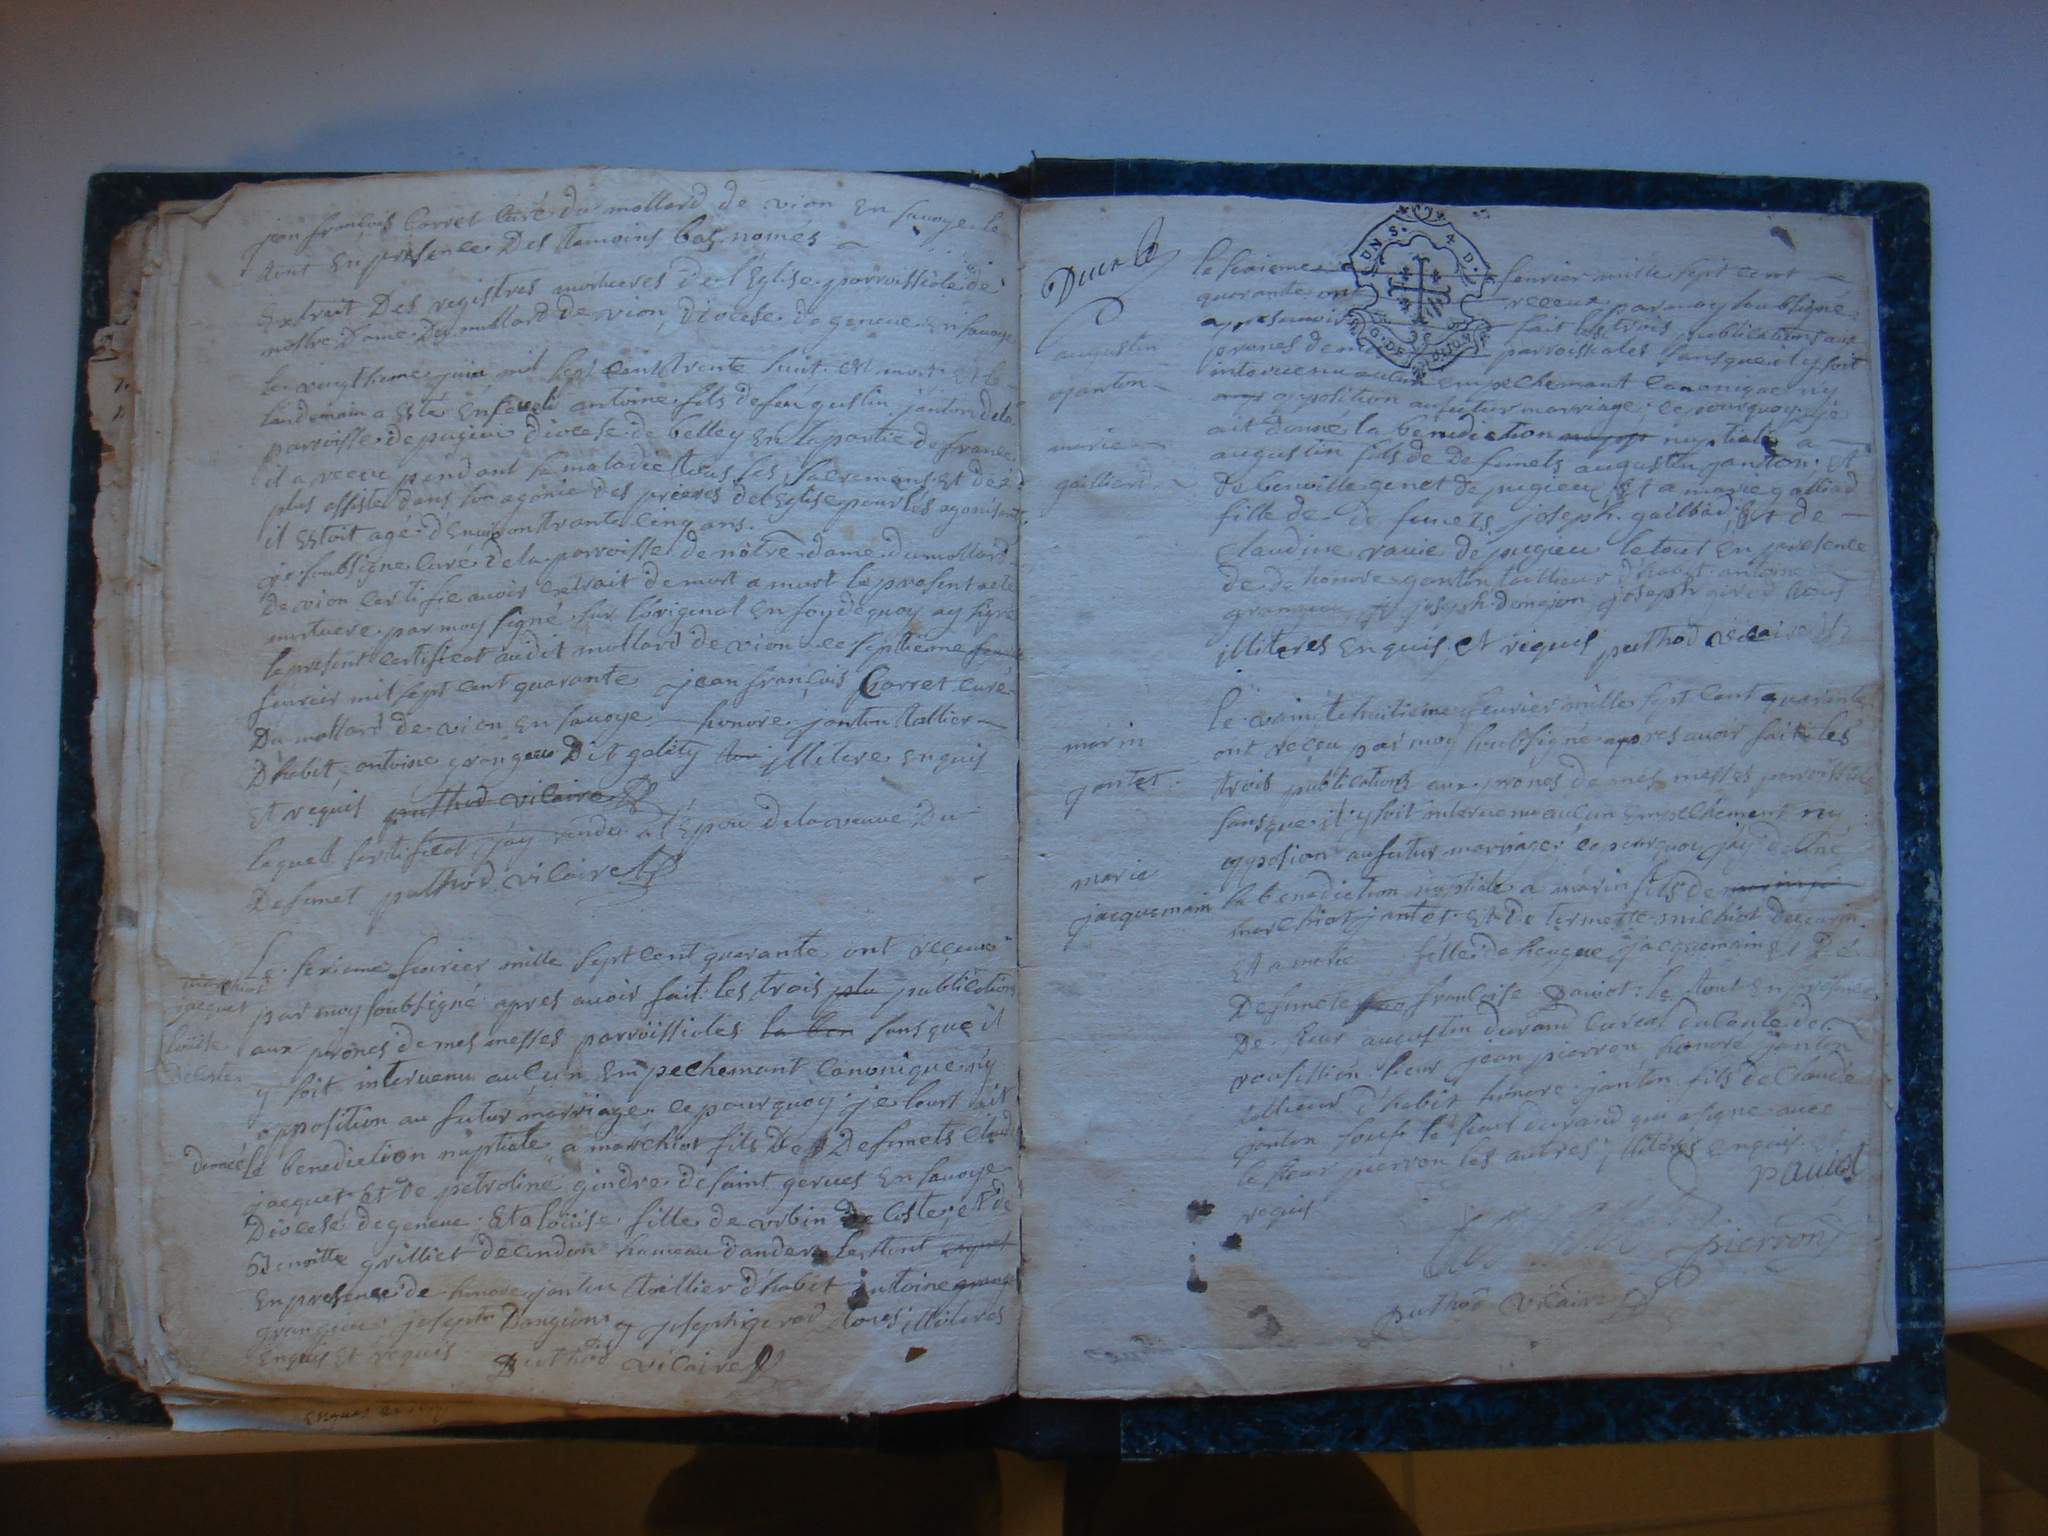 jean françois Corret curé du mollard de vion En savoye le
tout En presence Des temoins bas només
Extrait Des registres mortueres de l'Eglise parroissiale de
nostre Dame Du mollard de vion, Diocese de geneve En savoye
Le vingtieme juin mil sept cent trente huit Est mort Et le
landemain a Esté Enseveli antoine fils de feu gustin janton de la
parroisse de pugieu diocese de belley En la partie de france
il a receu pendant sa maladie tous les sacremens Et de
plus assisté dans son agonie des prieres de l'Eglise pour les agonisants
il Estoit agé d'Environ trante cinq ans.
je soubsigné Curé de la parroisse de nôtre dame du mollard
de vion certifie avoir extrait de mot a mot le present acte
mortuere par moy signé sur l'original En foy de quoy ay signé
le present certificat audit mollard de vion ce septieme
fevrier mil sept cent quarante jean françois Corret curé
Du mollard de vion En savoye honore janton tallier
D'habit, antoine grangeou Dit galety illitere enquis
Et requis puthod vicaire
lequel sertificat j'ay rendu a l'Epou de la veuve Du
Defunct puthod vicaire
marchiot
jacquet
loüise
Delaste
Le sexieme fevrier mille sept cent quarante ont receu
par moy soubsigné apres avoir fait les trois plu publication
aux prones de mes messes parroissiales la ben sans que it
y soit intervenu aulcun Empechemant Canonique ny
opposition au futur marriage ce pourquoy je leurt ait
donné la benediction nuptiale a marchiot fils De Defunets Claude
jacquet Et de petroline gindre de saint gerves En savoye
Diocese de geneve Et a loüise fille de urbin De laste, et de
Benoitte grilliet de andon hameau d'andert Le tout
En presence de honore janton taillier d'habit antoine
grangeou joseph Dangion y joseph girod tous illiteres
Enquis Et requis puthod vicaire
Ducale
augustin
janton
marie
galliard
le fevrier mille sept cent
quarante ont receu par moy soubsigné
apres avoir fait les trois publications aux
prones de mes parroissiales sans que il y soit
intervenu aulcun Empechemant Canonique ny
opposition au futur marriage ce pourquoy je
ait donné la benediction nuptiale a
augustin fils de Defunets augustin janton Et
de benoitte genet de pugieu Et a marie galliad
fille de defunets joseph gailbad, Et de
Claudine ravie de pugieu le tout En presence
de honore gantin taillieur d'habit antoine
grangeou joseph dangion joseph girod tous
illiteres Enquis et requis puthod vicaire
marin
jantet
marie
jacquemain
le vaintehuitieme fevrier mille sept cent quarante
ont receu par moy soubsigné apres avoir fait les
trois publications aux prones de mes messes parroissiales
sans que it y soit intervenu aulcun Empechement ny
opposion au futur marriage ce pourquoy j'ay donné
la benediction nuptiale a marin fils de
marchiot jantet Et De termette michiot
Et a marie fille de hugue jacquemain Et De
Defuncte françoise paviot le tout En presence
De sieur augustin durand
rossillion sieur jean pierron honore janton
tallieur d'habit honore janton fils de Claude
janton soufs le sieur durand qui a signé avec
le sieur pierron les autres illiteres enquis et
requis paviot
pierron
puthod vicaire